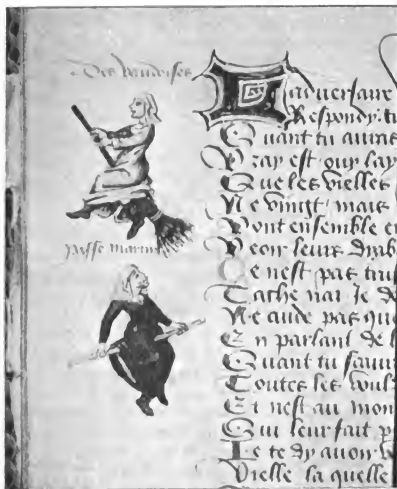 Des vaudoises
passe martin
Ladversaire
Respondy tu
Quant tu auras
Vray est ouy lay
Que les vielles
Ne vingt mais
Vont ensemble e
Veoir leurs dyab
Ce nest pas truf
Je de
Ne cuide pas que
En parlant de l
Quant tu sauras
Toutes les voul
nest au mon
Qui leur fait p
Je te dy avoir v
Vielle la quelle